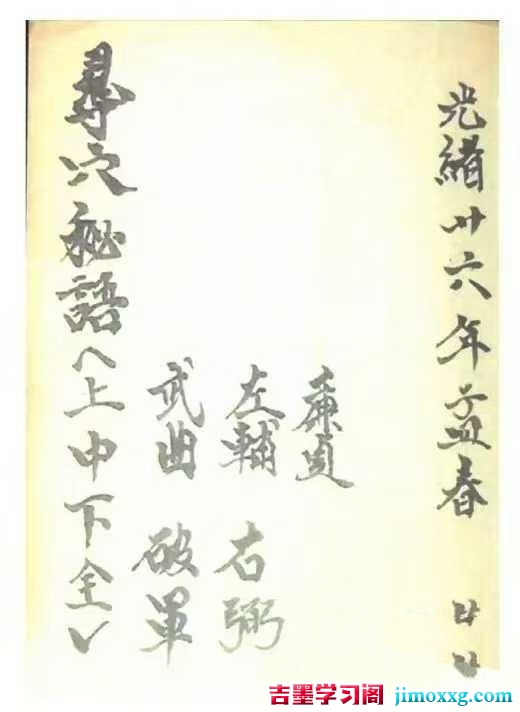 光緒卅六年孟春
廉貞
左輔 右弼
武曲 破軍
尋穴秘語(上中下全)
吉墨学习阁 jimoxxg.com